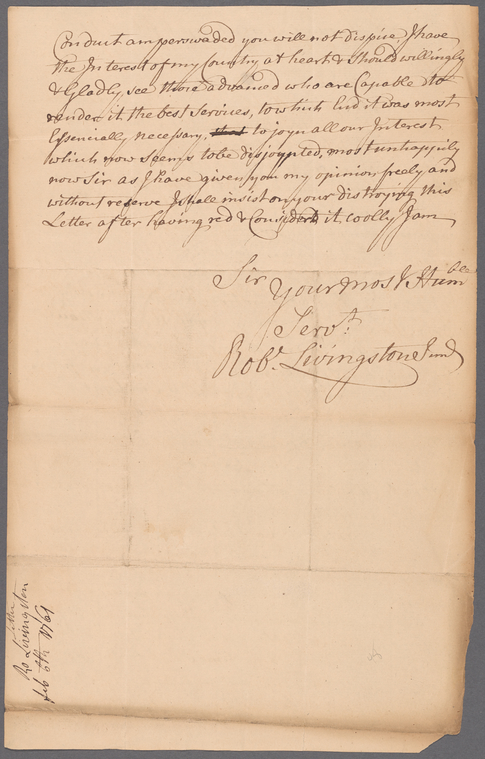 Conduct am perswaded you will not dispise, I have
the Interest of my Country at heart & Should willingly
& Gladly, see those advanced who are Capable to
render it the best Services, to which End it was most
Essencially necessary, to joyn all our Interest
which now seems to be disjoynted, most unhappily
now Sir as I have given you my opinion freely and
without reserve I shall insist on your distroying this
Letter after having red & Considerd it coolly I am
Sir
Your most Humble
Servt.
Robt. Livingston Junr
Ro Livingston
feb 6th 1769